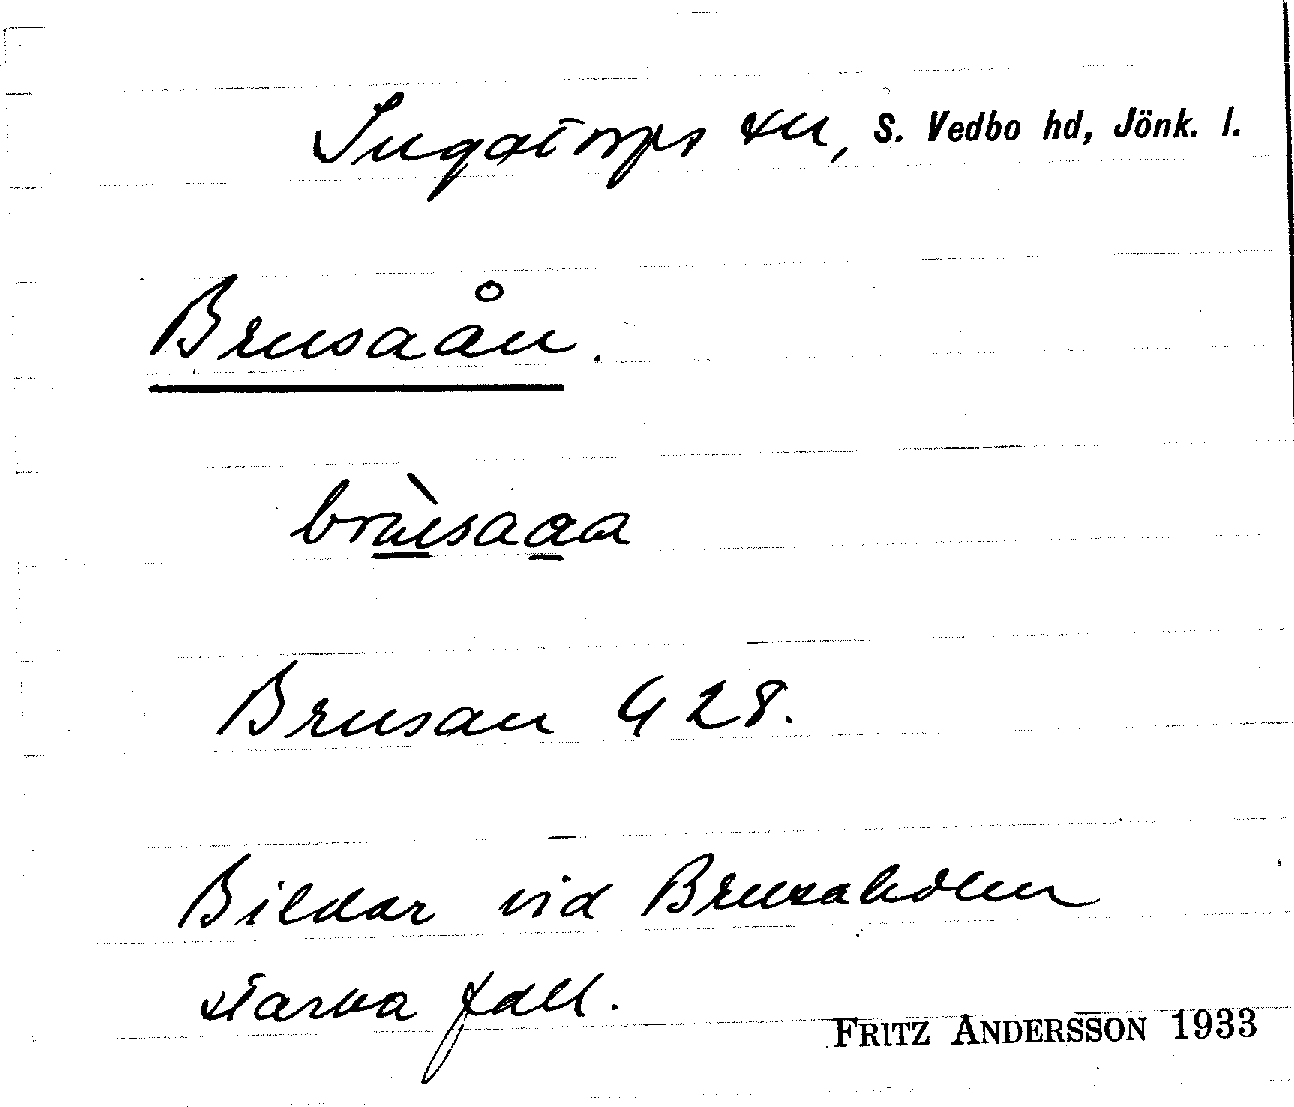 Ingatorps sn, S. Vedbo hd, Jönk. l.
Brusaån.
brùsaaa
Brusan G 28.
Bildar vid Brusaholm
starka fall.
FRITZ ANDERSSON 1933